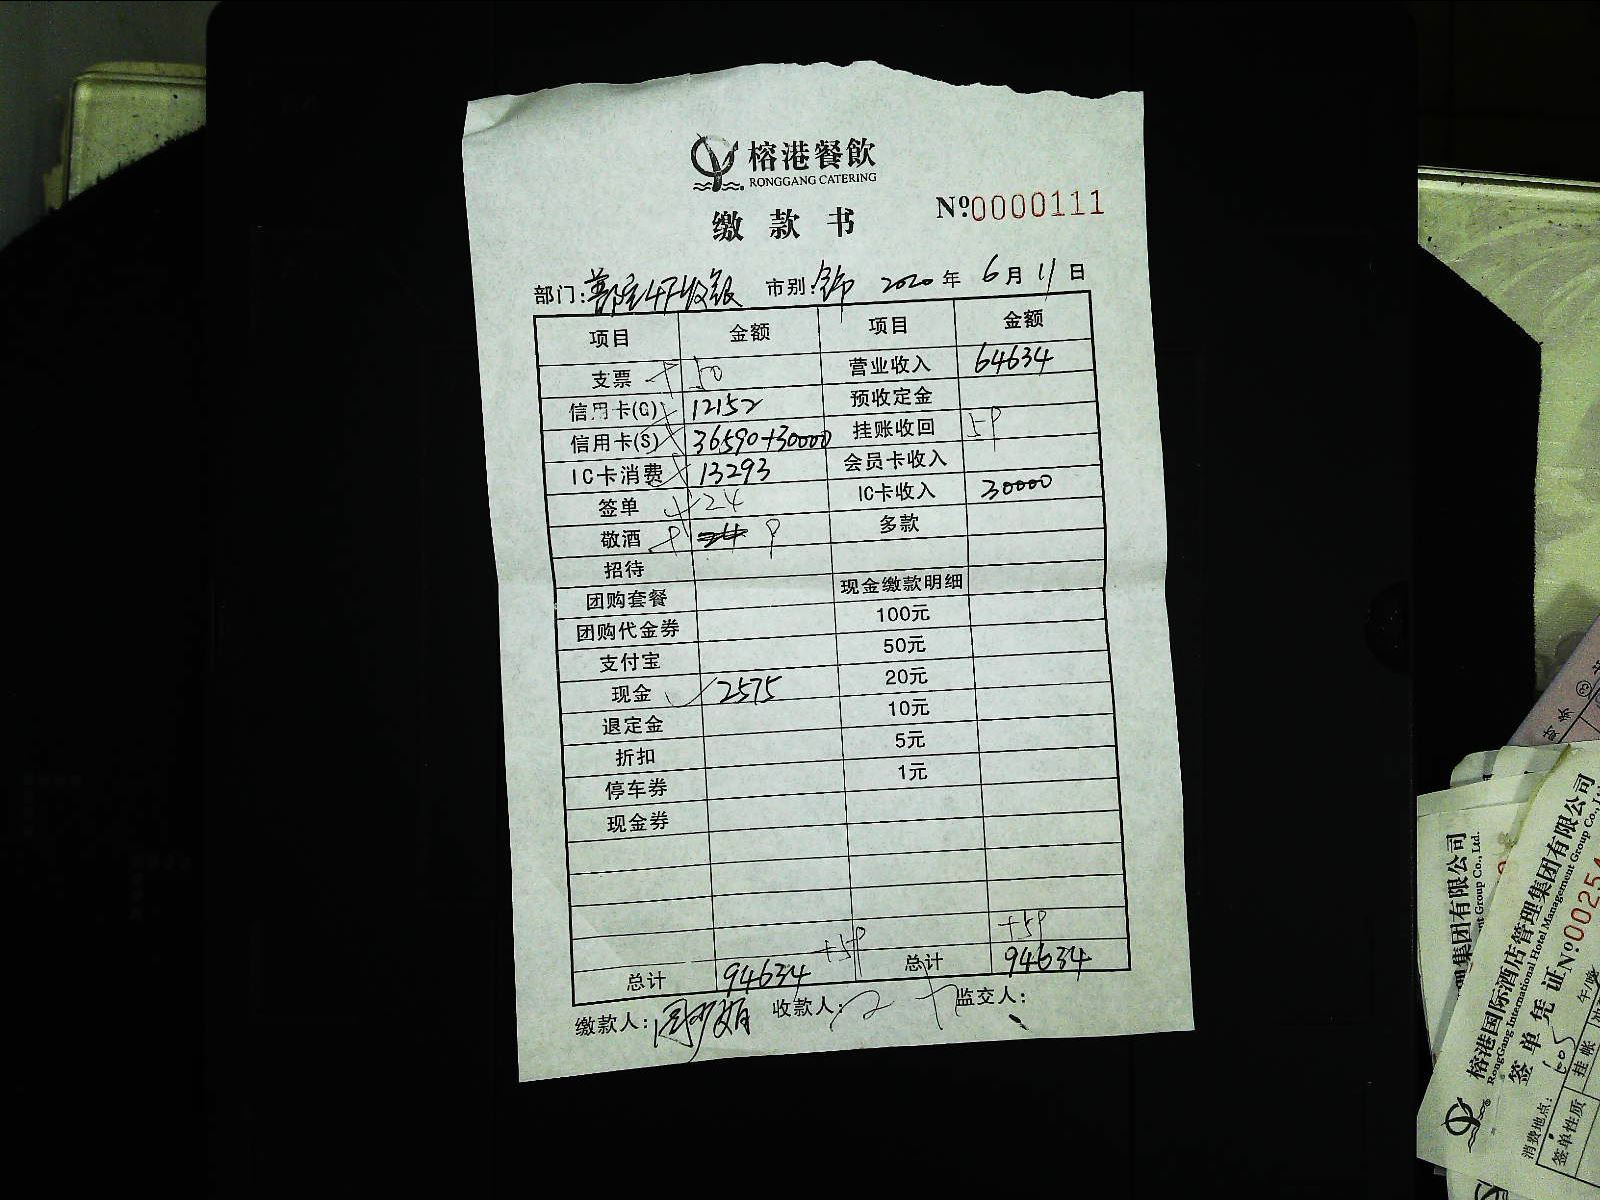 榕港餐飲
RONGGANG CATERING
缴款书
Nº0000111
部门: 市别: 2020年6月11日
项目 金额 项目 金额
支票 50 营业收入 64634
信用卡(G) 12152 预收定金
信用卡(S) 36590+30000 挂账收回 59
IC卡消费 13293 会员卡收入
签单 24 IC卡收入 30000
敬酒 9 多款
招待
团购套餐 现金缴款明细
团购代金券 100元
支付宝 50元
现金 2575 20元
退定金 10元
折扣 5元
停车券 1元
现金券
+59 +59
总计 94634 总计 94634
缴款人: 收款人: 监交人:
集团有限公司
nt Group Co., Ltd.
榕港国际酒店管理集团有限公司
RongGang International Hotel Management Group Co.,
签单凭证 Nº00254
消费地点:
签单性质 挂帐